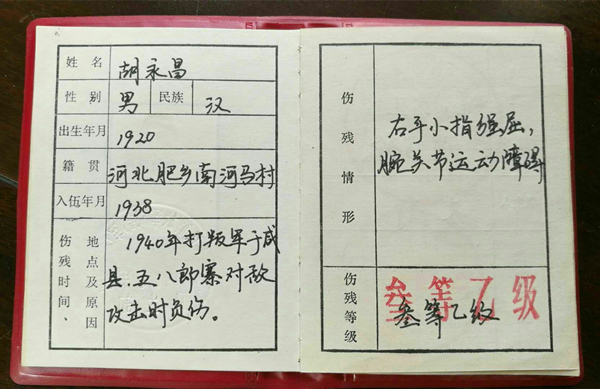 姓名 胡永昌
性别 男 民族 汉
出生年月 1920
籍贯 河北肥乡南河马村
入伍年月 1938
伤残时间、地点及原因
1940年打叛军于成
县.五八郎寨对敌
攻击时负伤。
伤残情形
右手小指强屈,
腕关节运动障碍
伤残等级
叁等乙级
叁等乙级